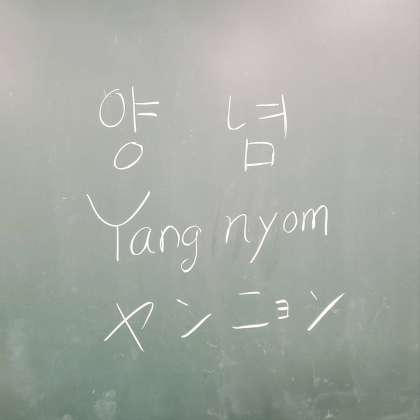 양 념
Yang nyom
ヤンニョン